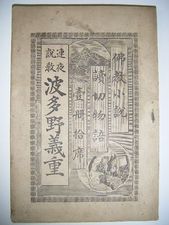 佛教小說
讀切物語
壹冊拾席
連夜
說教
波多野義重